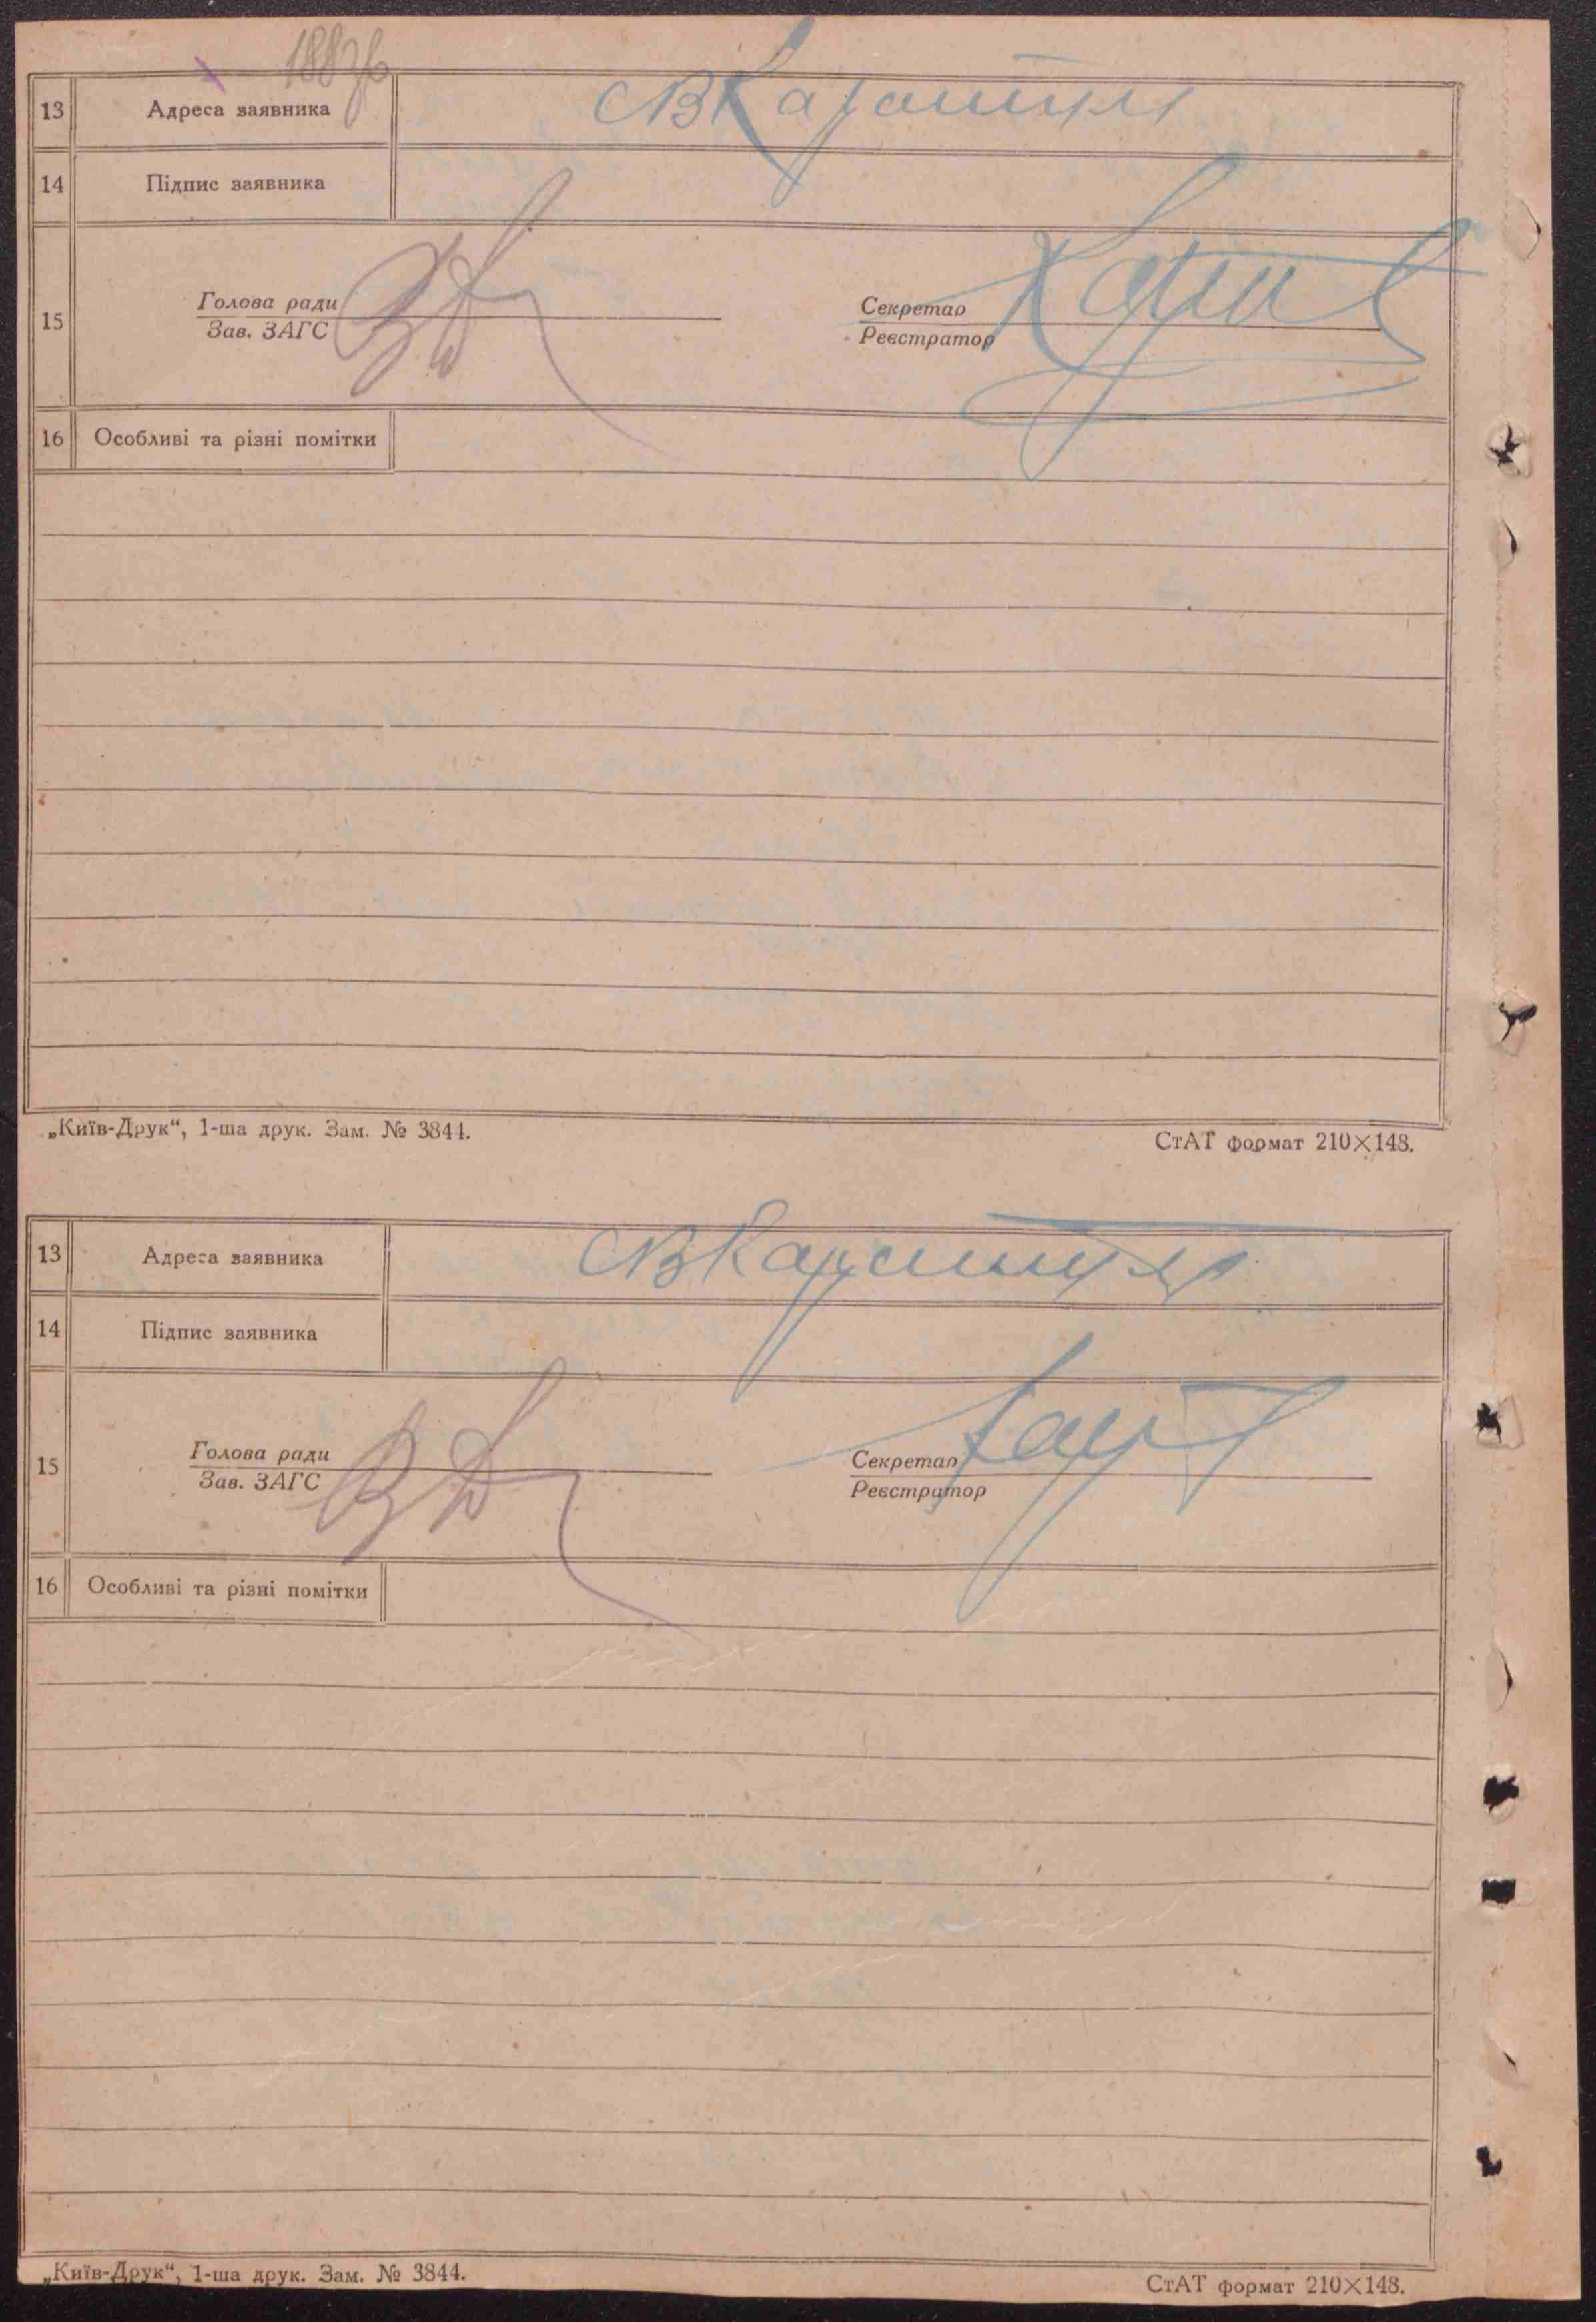 188зв
13 Адреса заявника с В Каратул
14 Підпис заявника
15 Голова ради
Зав. ЗАГС
Секретар
Реєстратор
16 Особливі та різні помітки
„Київ-Друк“, 1-ша друк. Зам. № 3844.
СтАТ формат 210×148.
13 Адреса заявника с В Каратул
14 Підпис заявника
15 Голова ради
Зав. ЗАГС
Секретар
Реєстратор
16 Особливі та різні помітки
„Київ-Друк“, 1-ша друк. Зам. № 3844.
СтАТ формат 210×148.